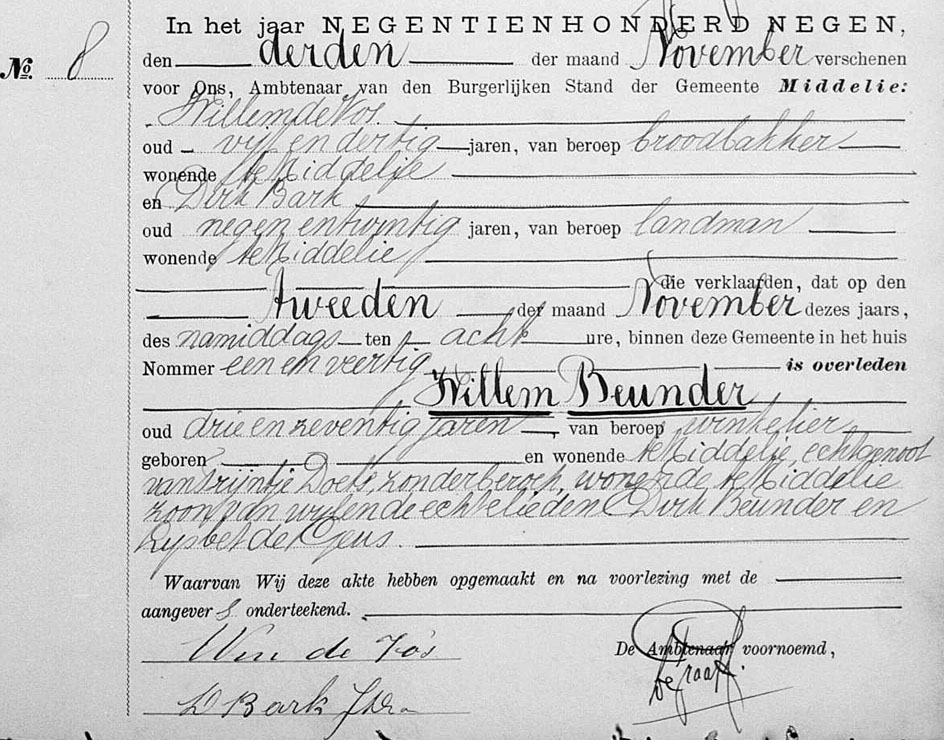 In het jaar NEGENTIENHONDERD NEGEN,
No. 8
den derden der maand November verschenen
voor Ons, Ambtenaar van den Burgerlijken Stand der Gemeente Middelie:
Willem de Vos
oud vijf en dertig jaren, van beroep broodbakker
wonende te Middelie
en Dirk Bark
oud negen en twintig jaren, van beroep landman
wonende te Middelie
die verklaarden, dat op den
tweeden der maand November dezes jaars,
des namiddags ten acht ure, binnen deze Gemeente in het huis
Nommer een en veertig is overleden
Willem Beunder
oud drie en zeventig jaren, van beroep winkelier
geboren en wonende te Middelie, echtgenoot
van Trijntje Doets, zonder beroep, wonende te Middelie
zoon van wijlen de echtelieden Dirk Beunder en
Lijsbet de Geus.
Waarvan Wij deze akte hebben opgemaakt en na voorlezing met de
aangever s onderteekend.
Wm de Vos
De Ambtenaar voornoemd,
D Bark